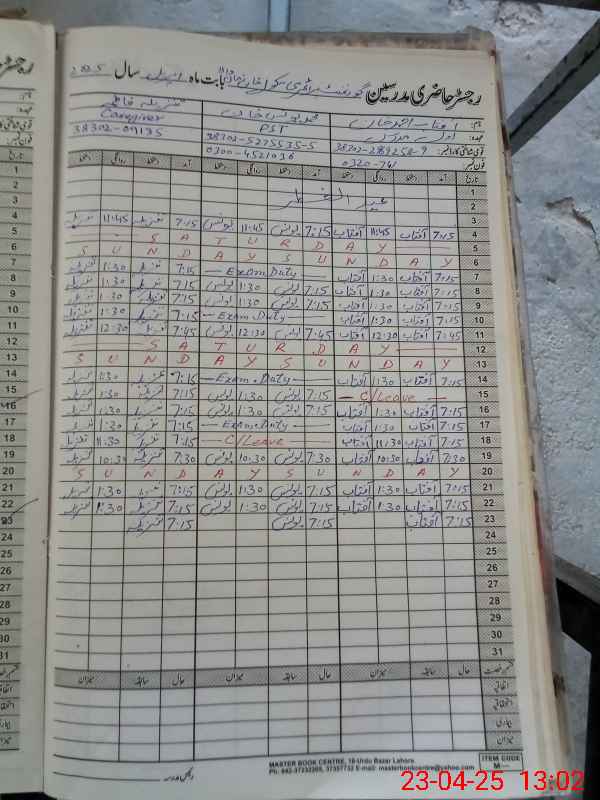 رجسٹر حاضری مدرسین گورنمنٹ پرائمری سکول بابت ماہ اپریل سال 2025
نام: آفتاب احمد خان محمد یونس خان تنزیلہ فاطمہ
عہدہ: PST Caregiver
قومی شناختی کارڈ نمبر: 38302-5275535-5 38302-09195
فون نمبر: 0300-4521036
تاریخ آمد دستخط روانگی دستخط آمد دستخط روانگی دستخط آمد دستخط روانگی دستخط
1 عید الفطر
2
3
4 7:15 آفتاب 11:45 آفتاب 7:15 یونس 11:45 یونس 7:15 تنزیلہ 11:45 تنزیلہ
5 SATURDAY
6 SUNDAY SUNDAY
7 7:15 آفتاب 1:30 آفتاب Exam Duty 7:15 تنزیلہ 1:30 تنزیلہ
8 7:15 آفتاب 1:30 آفتاب 7:15 یونس 1:30 یونس 7:15 تنزیلہ 1:30 تنزیلہ
9 7:15 آفتاب 1:30 آفتاب 7:15 یونس 1:30 یونس 7:15 تنزیلہ 1:30 تنزیلہ
10 7:15 آفتاب 1:30 آفتاب Exam Duty 7:15 تنزیلہ 1:30 تنزیلہ
11 7:45 آفتاب 12:30 آفتاب 7:45 یونس 12:30 یونس 7:45 تنزیلہ 12:30 تنزیلہ
12 SATURDAY
13 SUNDAY SUNDAY
14 7:15 آفتاب 1:30 آفتاب Exam Duty 7:15 تنزیلہ 1:30 تنزیلہ
15 C/Leave 7:15 یونس 1:30 یونس 7:15 تنزیلہ 1:30 تنزیلہ
16 7:15 آفتاب 1:30 آفتاب 7:15 یونس 1:30 یونس 7:15 تنزیلہ 1:30 تنزیلہ
17 7:15 آفتاب 1:30 آفتاب Exam Duty 7:15 تنزیلہ 1:30 تنزیلہ
18 7:15 آفتاب 11:30 آفتاب C/Leave 7:15 تنزیلہ 11:30 تنزیلہ
19 7:30 آفتاب 10:30 آفتاب 7:30 یونس 10:30 یونس 7:30 تنزیلہ 10:30 تنزیلہ
20 SUNDAY SUNDAY
21 7:15 آفتاب 1:30 آفتاب 7:15 یونس 1:30 یونس 7:15 تنزیلہ 1:30 تنزیلہ
22 7:15 آفتاب 1:30 آفتاب 7:15 یونس 1:30 یونس 7:15 تنزیلہ 1:30 تنزیلہ
23 7:15 آفتاب 7:15 یونس 7:15 تنزیلہ
24
25
26
27
28
29
30
31
قسم رخصت حال سابقہ میزان حال سابقہ میزان حال سابقہ میزان
اتفاقیہ
استحقاقیہ
بیماری
میزان
MASTER BOOK CENTRE, 18-Urdu Bazar Lahore.
Ph: 042-37232265, 37357732 E-mail: masterbookcentre@yahoo.com
ITEM CODE
M
23-04-25 13:02